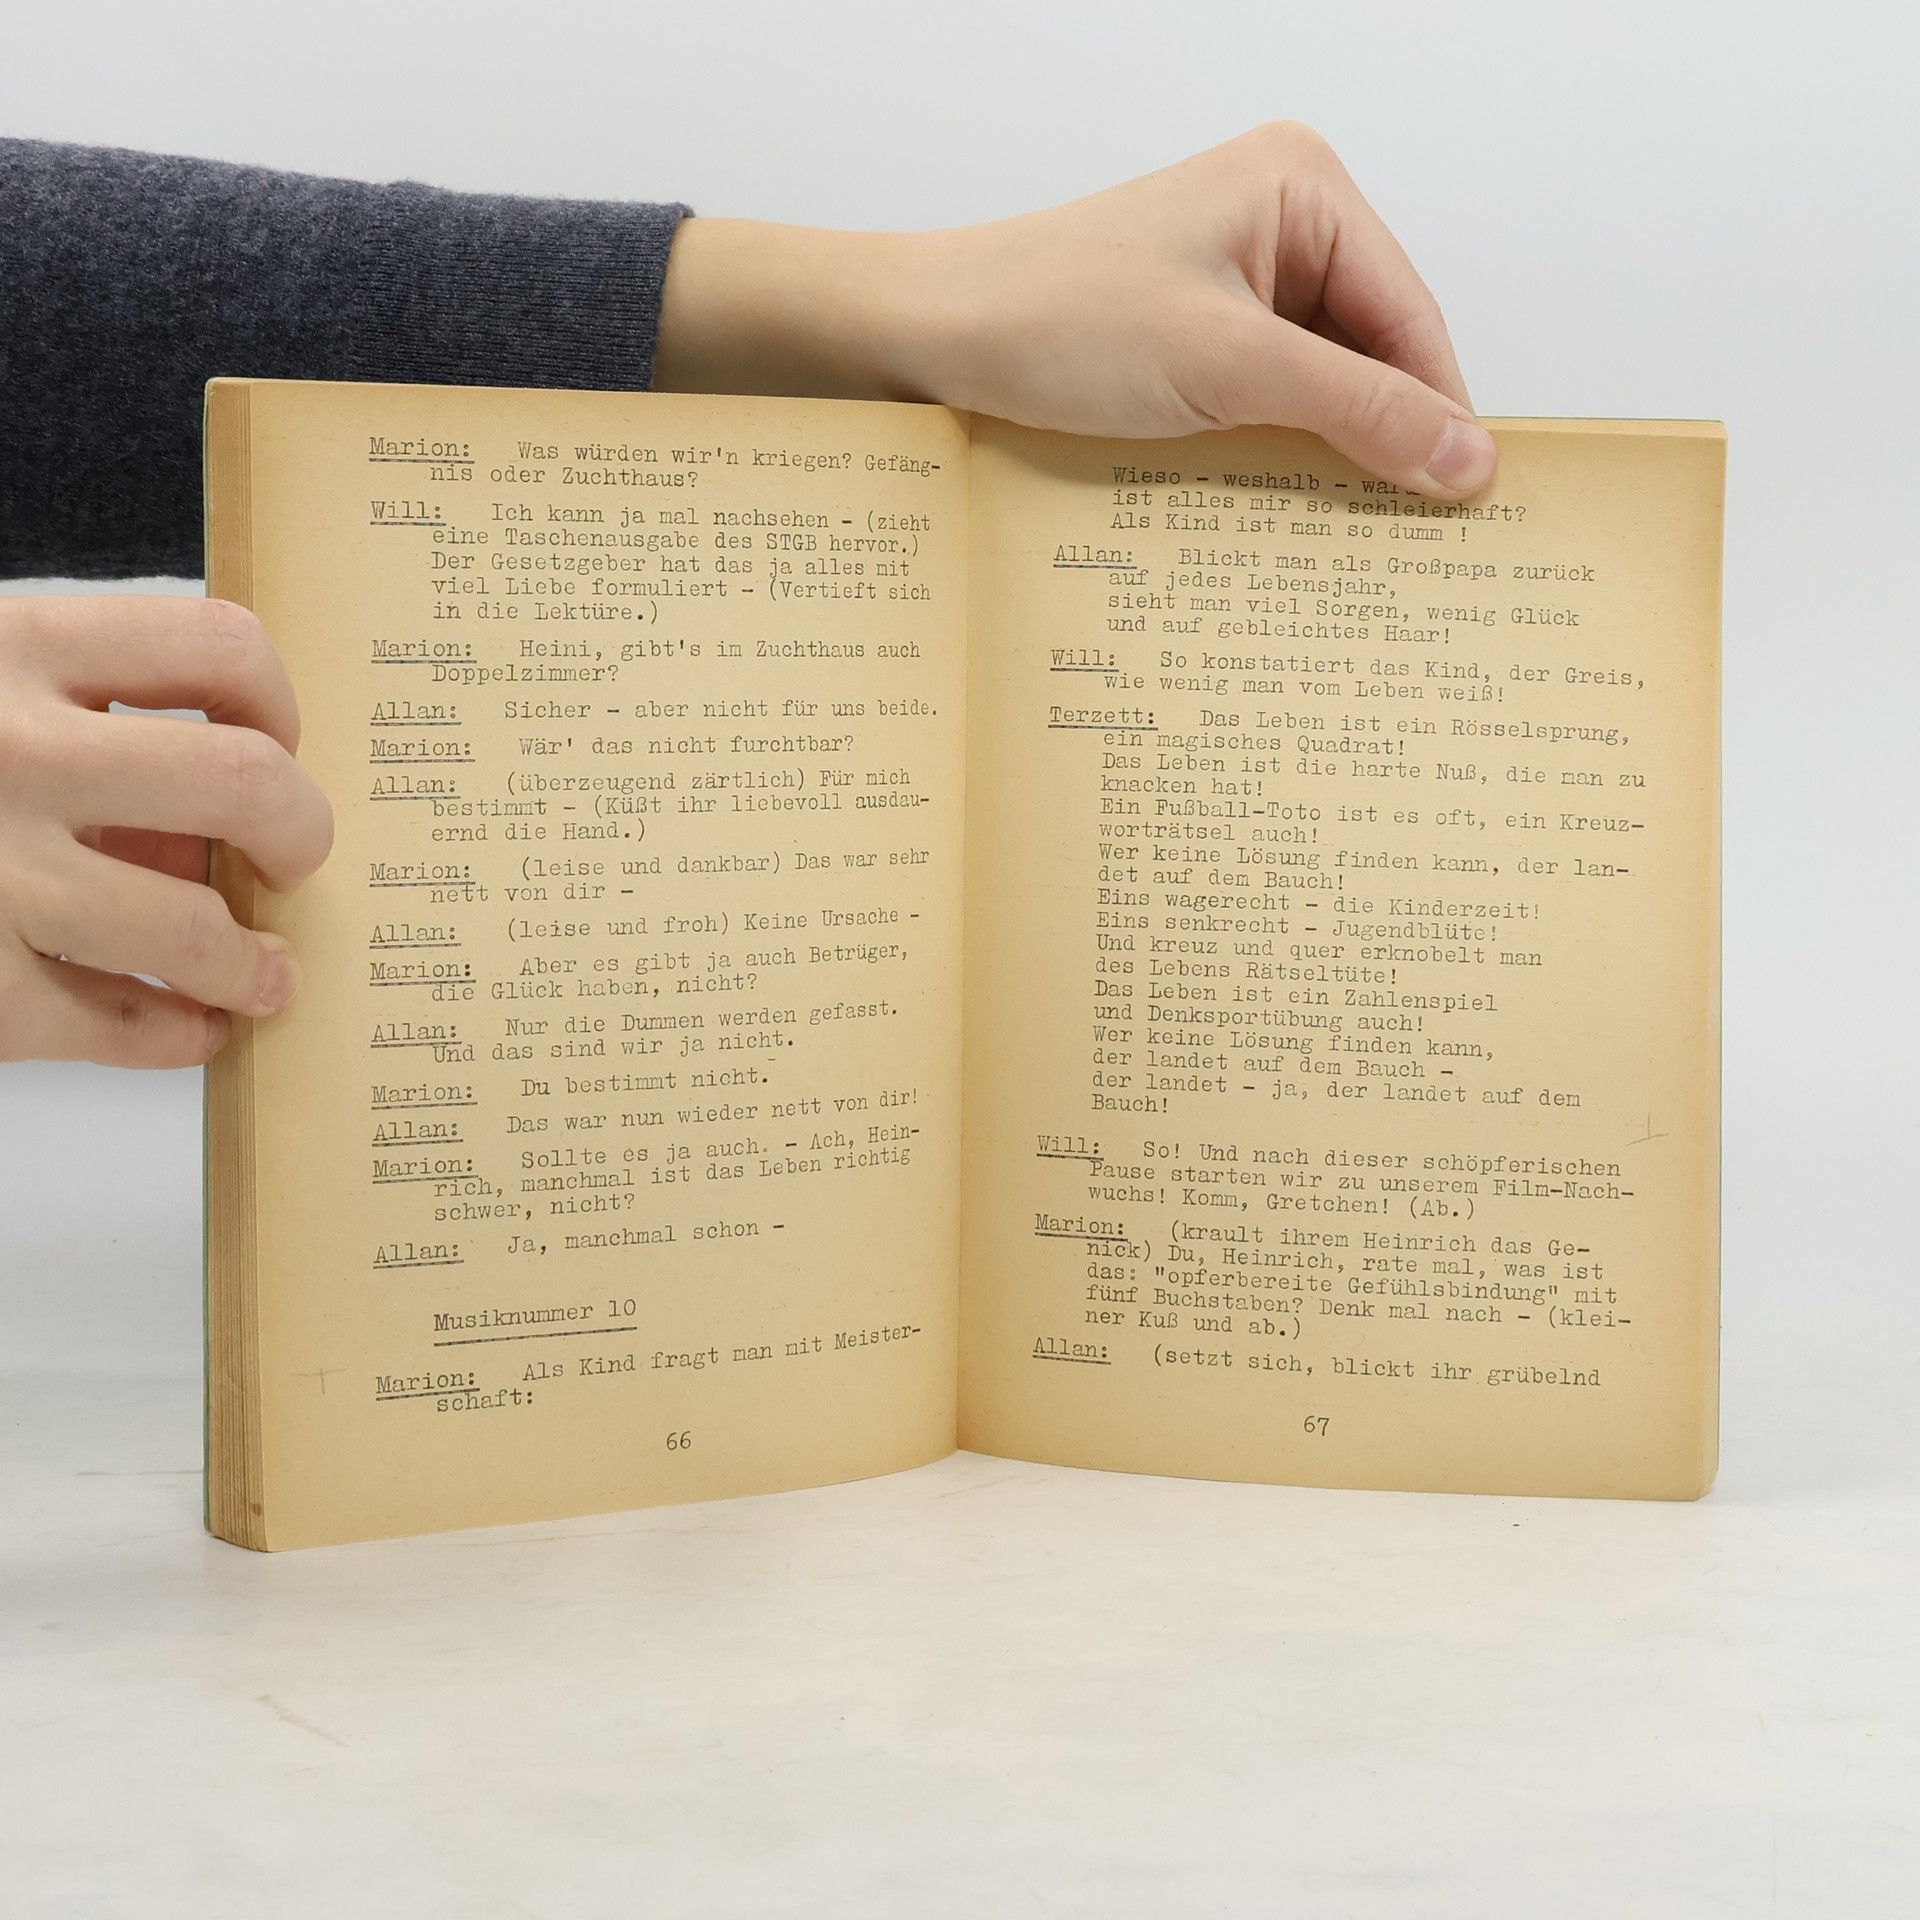 Marion: Was würden wir'n kriegen? Gefäng-
nis oder Zuchthaus?
Will: Ich kann ja mal nachsehen - (zieht
eine Taschenausgabe des STGB hervor.)
Der Gesetzgeber hat das ja alles mit
viel Liebe formuliert - (Vertieft sich
in die Lektüre.)
Marion: Heini, gibt's im Zuchthaus auch
Doppelzimmer?
Allan: Sicher - aber nicht für uns beide.
Marion: Wär' das nicht furchtbar?
Allan: (überzeugend zärtlich) Für mich
bestimmt - (Küßt ihr liebevoll ausdau-
ernd die Hand.)
Marion: (leise und dankbar) Das war sehr
nett von dir -
Allan: (leise und froh) Keine Ursache -
Marion: Aber es gibt ja auch Betrüger,
die Glück haben, nicht?
Allan: Nur die Dummen werden gefasst.
Und das sind wir ja nicht.
Marion: Du bestimmt nicht.
Allan: Das war nun wieder nett von dir!
Marion: Sollte es ja auch. - Ach, Hein-
rich, manchmal ist das Leben richtig
schwer, nicht?
Allan: Ja, manchmal schon -
Musiknummer 10
Marion: Als Kind fragt man mit Meister-
schaft:
66
Wieso - weshalb -
ist alles mir so schleierhaft?
Als Kind ist man so dumm !
Allan: Blickt man als Großpapa zurück
auf jedes Lebensjahr,
sieht man viel Sorgen, wenig Glück
und auf gebleichtes Haar!
Will: So konstatiert das Kind, der Greis,
wie wenig man vom Leben weiß!
Terzett: Das Leben ist ein Rösselsprung,
ein magisches Quadrat!
Das Leben ist die harte Nuß, die man zu
knacken hat!
Ein Fußball-Toto ist es oft, ein Kreuz-
worträtsel auch!
Wer keine Lösung finden kann, der lan-
det auf dem Bauch!
Eins wagerecht - die Kinderzeit!
Eins senkrecht - Jugendblüte!
Und kreuz und quer erknobelt man
des Lebens Rätseltüte!
Das Leben ist ein Zahlenspiel
und Denksportübung auch!
Wer keine Lösung finden kann,
der landet auf dem Bauch -
der landet - ja, der landet auf dem
Bauch!
Will: So! Und nach dieser schöpferischen
Pause starten wir zu unserem Film-Nach-
wuchs! Komm, Gretchen! (Ab.)
Marion: (krault ihrem Heinrich das Ge-
nick) Du, Heinrich, rate mal, was ist
das: "opferbereite Gefühlsbindung" mit
fünf Buchstaben? Denk mal nach - (klei-
ner Kuß und ab.)
Allan: (setzt sich, blickt ihr grübelnd
67